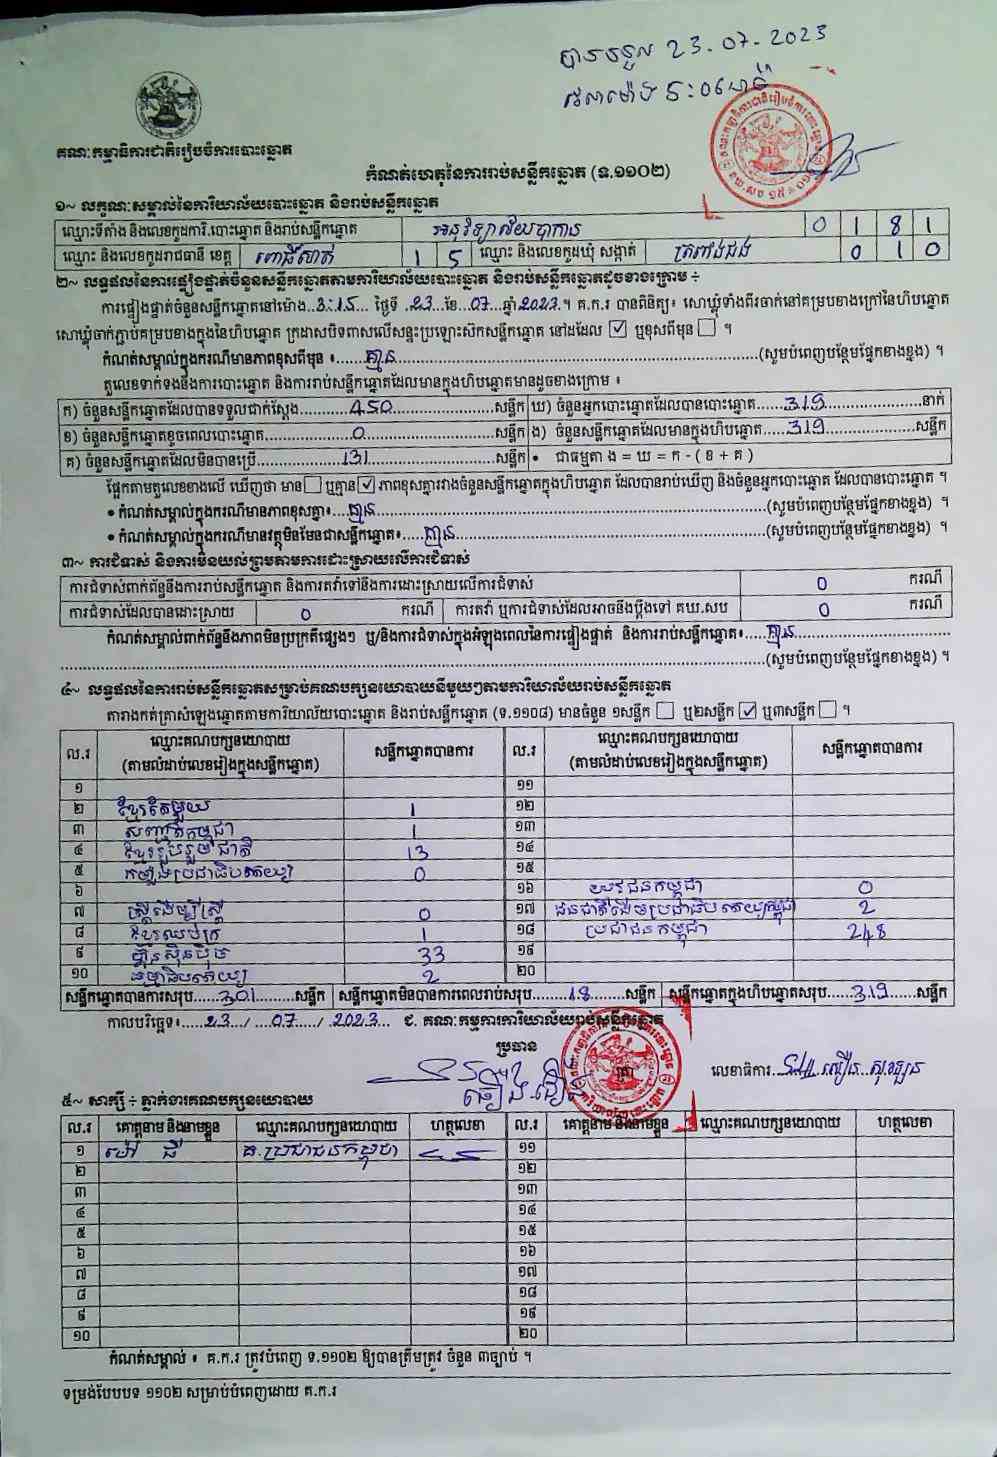 បានចូល 23.07.2023
វេលាម៉ោង 5:06នាទី
គណៈកម្មាធិការជាតិរៀបចំការបោះឆ្នោត
កំណត់ហេតុនៃការរាប់សន្លឹកឆ្នោត (ទ.១១០២)
១~ លក្ខណៈសម្គាល់នៃការិយាល័យបោះឆ្នោត និងរាប់សន្លឹកឆ្នោត
ឈ្មោះទីតាំង និងលេខកូដការិ.បោះឆ្នោត និងរាប់សន្លឹកឆ្នោត អនុវិទ្យាល័យបាកាន 0 1 8 1
ឈ្មោះ និងលេខកូដរាជធានី ខេត្ត ពោធិ៍សាត់ 1 5 ឈ្មោះ និងលេខកូដឃុំ សង្កាត់ ត្រពាំងជង 0 1 0
២~ លទ្ធផលនៃការផ្ទៀងផ្ទាត់ចំនួនសន្លឹកឆ្នោតតាមការិយាល័យបោះឆ្នោត និងរាប់សន្លឹកឆ្នោតដូចខាងក្រោម ÷
ការផ្ទៀងផ្ទាត់ចំនួនសន្លឹកឆ្នោតនៅម៉ោង 3:15 ថ្ងៃទី 23 ខែ 07 ឆ្នាំ 2023 ។ គ.ក.រ បានពិនិត្យ៖ សោឃ្លុំទាំងពីរចាក់នៅគម្របខាងក្រៅនៃហិបឆ្នោត
សោឃ្លុំចាក់ភ្ជាប់គម្របខាងក្នុងនៃហិបឆ្នោត ក្រដាសបិទពាសលើសន្ទះប្រឡោះស៊កសន្លឹកឆ្នោត នៅដដែល ☑ ឬខុសពីមុន ☐ ។
កំណត់សម្គាល់ក្នុងករណីមានភាពខុសពីមុន ៖ គ្មាន (សូមបំពេញបន្ថែមផ្នែកខាងខ្នង) ។
តួលេខទាក់ទងនឹងការបោះឆ្នោត និងការរាប់សន្លឹកឆ្នោតដែលមានក្នុងហិបឆ្នោតមានដូចខាងក្រោម ៖
ក) ចំនួនសន្លឹកឆ្នោតដែលបានទទួលជាក់ស្តែង 450 សន្លឹក ឃ) ចំនួនអ្នកបោះឆ្នោតដែលបានបោះឆ្នោត 319 នាក់
ខ) ចំនួនសន្លឹកឆ្នោតខូចពេលបោះឆ្នោត 0 សន្លឹក ង) ចំនួនសន្លឹកឆ្នោតដែលមានក្នុងហិបឆ្នោត 319 សន្លឹក
គ) ចំនួនសន្លឹកឆ្នោតដែលមិនបានប្រើ 131 សន្លឹក • ជាធម្មតា ង = ឃ = ក - ( ខ + គ )
ផ្អែកតាមតួលេខខាងលើ ឃើញថា មាន ☐ ឬគ្មាន ☑ ភាពខុសគ្នារវាងចំនួនសន្លឹកឆ្នោតក្នុងហិបឆ្នោត ដែលបានរាប់ឃើញ និងចំនួនអ្នកបោះឆ្នោត ដែលបានបោះឆ្នោត ។
• កំណត់សម្គាល់ក្នុងករណីមានភាពខុសគ្នា៖ គ្មាន (សូមបំពេញបន្ថែមផ្នែកខាងខ្នង) ។
• កំណត់សម្គាល់ក្នុងករណីមានវត្ថុមិនមែនជាសន្លឹកឆ្នោត៖ គ្មាន (សូមបំពេញបន្ថែមផ្នែកខាងខ្នង) ។
៣~ ការជំទាស់ និងការមិនយល់ព្រមតាមការដោះស្រាយលើការជំទាស់
ការជំទាស់ពាក់ព័ន្ធនឹងការរាប់សន្លឹកឆ្នោត និងការតវ៉ាទៅនឹងការដោះស្រាយលើការជំទាស់ 0 ករណី
ការជំទាស់ដែលបានដោះស្រាយ 0 ករណី ការតវ៉ា ឬការជំទាស់ដែលអាចនឹងប្តឹងទៅ គឃ.សប 0 ករណី
កំណត់សម្គាល់ពាក់ព័ន្ធនឹងភាពមិនប្រក្រតីផ្សេងៗ ឬ/និងការជំទាស់ក្នុងអំឡុងពេលនៃការផ្ទៀងផ្ទាត់ និងការរាប់សន្លឹកឆ្នោត៖ គ្មាន
(សូមបំពេញបន្ថែមផ្នែកខាងខ្នង) ។
៤~ លទ្ធផលនៃការរាប់សន្លឹកឆ្នោតសម្រាប់គណបក្សនយោបាយនីមួយៗតាមការិយាល័យរាប់សន្លឹកឆ្នោត
តារាងកត់ត្រាសំឡេងឆ្នោតតាមការិយាល័យបោះឆ្នោត និងរាប់សន្លឹកឆ្នោត (ទ.១១០៨) មានចំនួន ១សន្លឹក ☐ ឬ២សន្លឹក ☑ ឬ៣សន្លឹក ☐ ។
ល.រ ឈ្មោះគណបក្សនយោបាយ (តាមលំដាប់លេខរៀងក្នុងសន្លឹកឆ្នោត) សន្លឹកឆ្នោតបានការ ល.រ ឈ្មោះគណបក្សនយោបាយ (តាមលំដាប់លេខរៀងក្នុងសន្លឹកឆ្នោត) សន្លឹកឆ្នោតបានការ
១ ១១
២ ខ្មែរតែមួយ 1 ១២
៣ សញ្ជាតិកម្ពុជា 1 ១៣
៤ ខ្មែររួបរួមជាតិ 13 ១៤
៥ កម្លាំងប្រជាធិបតេយ្យ 0 ១៥
៦ ១៦ យុវជនកម្ពុជា 0
៧ ស្ត្រីដើម្បីស្ត្រី 0 ១៧ ជនជាតិដើមប្រជាធិបតេយ្យកម្ពុជា 2
៨ ខ្មែរឈប់ក្រ 1 ១៨ ប្រជាជនកម្ពុជា 248
៩ ហ៊្វុនស៊ិនប៉ិច 33 ១៩
១០ ធម្មាធិបតេយ្យ 2 ២០
សន្លឹកឆ្នោតបានការសរុប 301 សន្លឹក សន្លឹកឆ្នោតមិនបានការពេលរាប់សរុប 18 សន្លឹក សន្លឹកឆ្នោតក្នុងហិបឆ្នោតសរុប 319 សន្លឹក
កាលបរិច្ឆេទ៖ 23 / 07 / 2023 ជ. គណៈកម្មការការិយាល័យរាប់សន្លឹកឆ្នោត
ប្រធាន
លេខាធិការ
៥~ សាក្សី ÷ ភ្នាក់ងារគណបក្សនយោបាយ
ល.រ គោត្តនាម និងនាមខ្លួន ឈ្មោះគណបក្សនយោបាយ ហត្ថលេខា ល.រ គោត្តនាម និងនាមខ្លួន ឈ្មោះគណបក្សនយោបាយ ហត្ថលេខា
១ ម៉ៅ ធី គ.ប្រជាជនកម្ពុជា ១១
២ ១២
៣ ១៣
៤ ១៤
៥ ១៥
៦ ១៦
៧ ១៧
៨ ១៨
៩ ១៩
១០ ២០
កំណត់សម្គាល់ ៖ គ.ក.រ ត្រូវបំពេញ ទ.១១០២ ឱ្យបានត្រឹមត្រូវ ចំនួន ៣ច្បាប់ ។
ទម្រង់បែបបទ ១១០២ សម្រាប់បំពេញដោយ គ.ក.រ